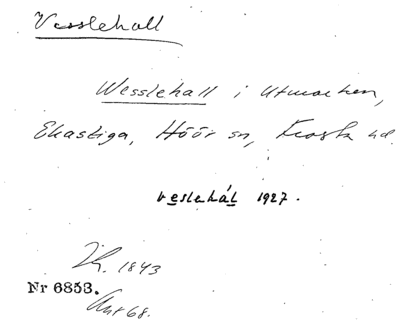 Vesslehall
Wesslehall i Utmarken,
Ekastiga, Höör sn, Frosta hd.
veslehál 1927.
1843
Nr 6853.
68.